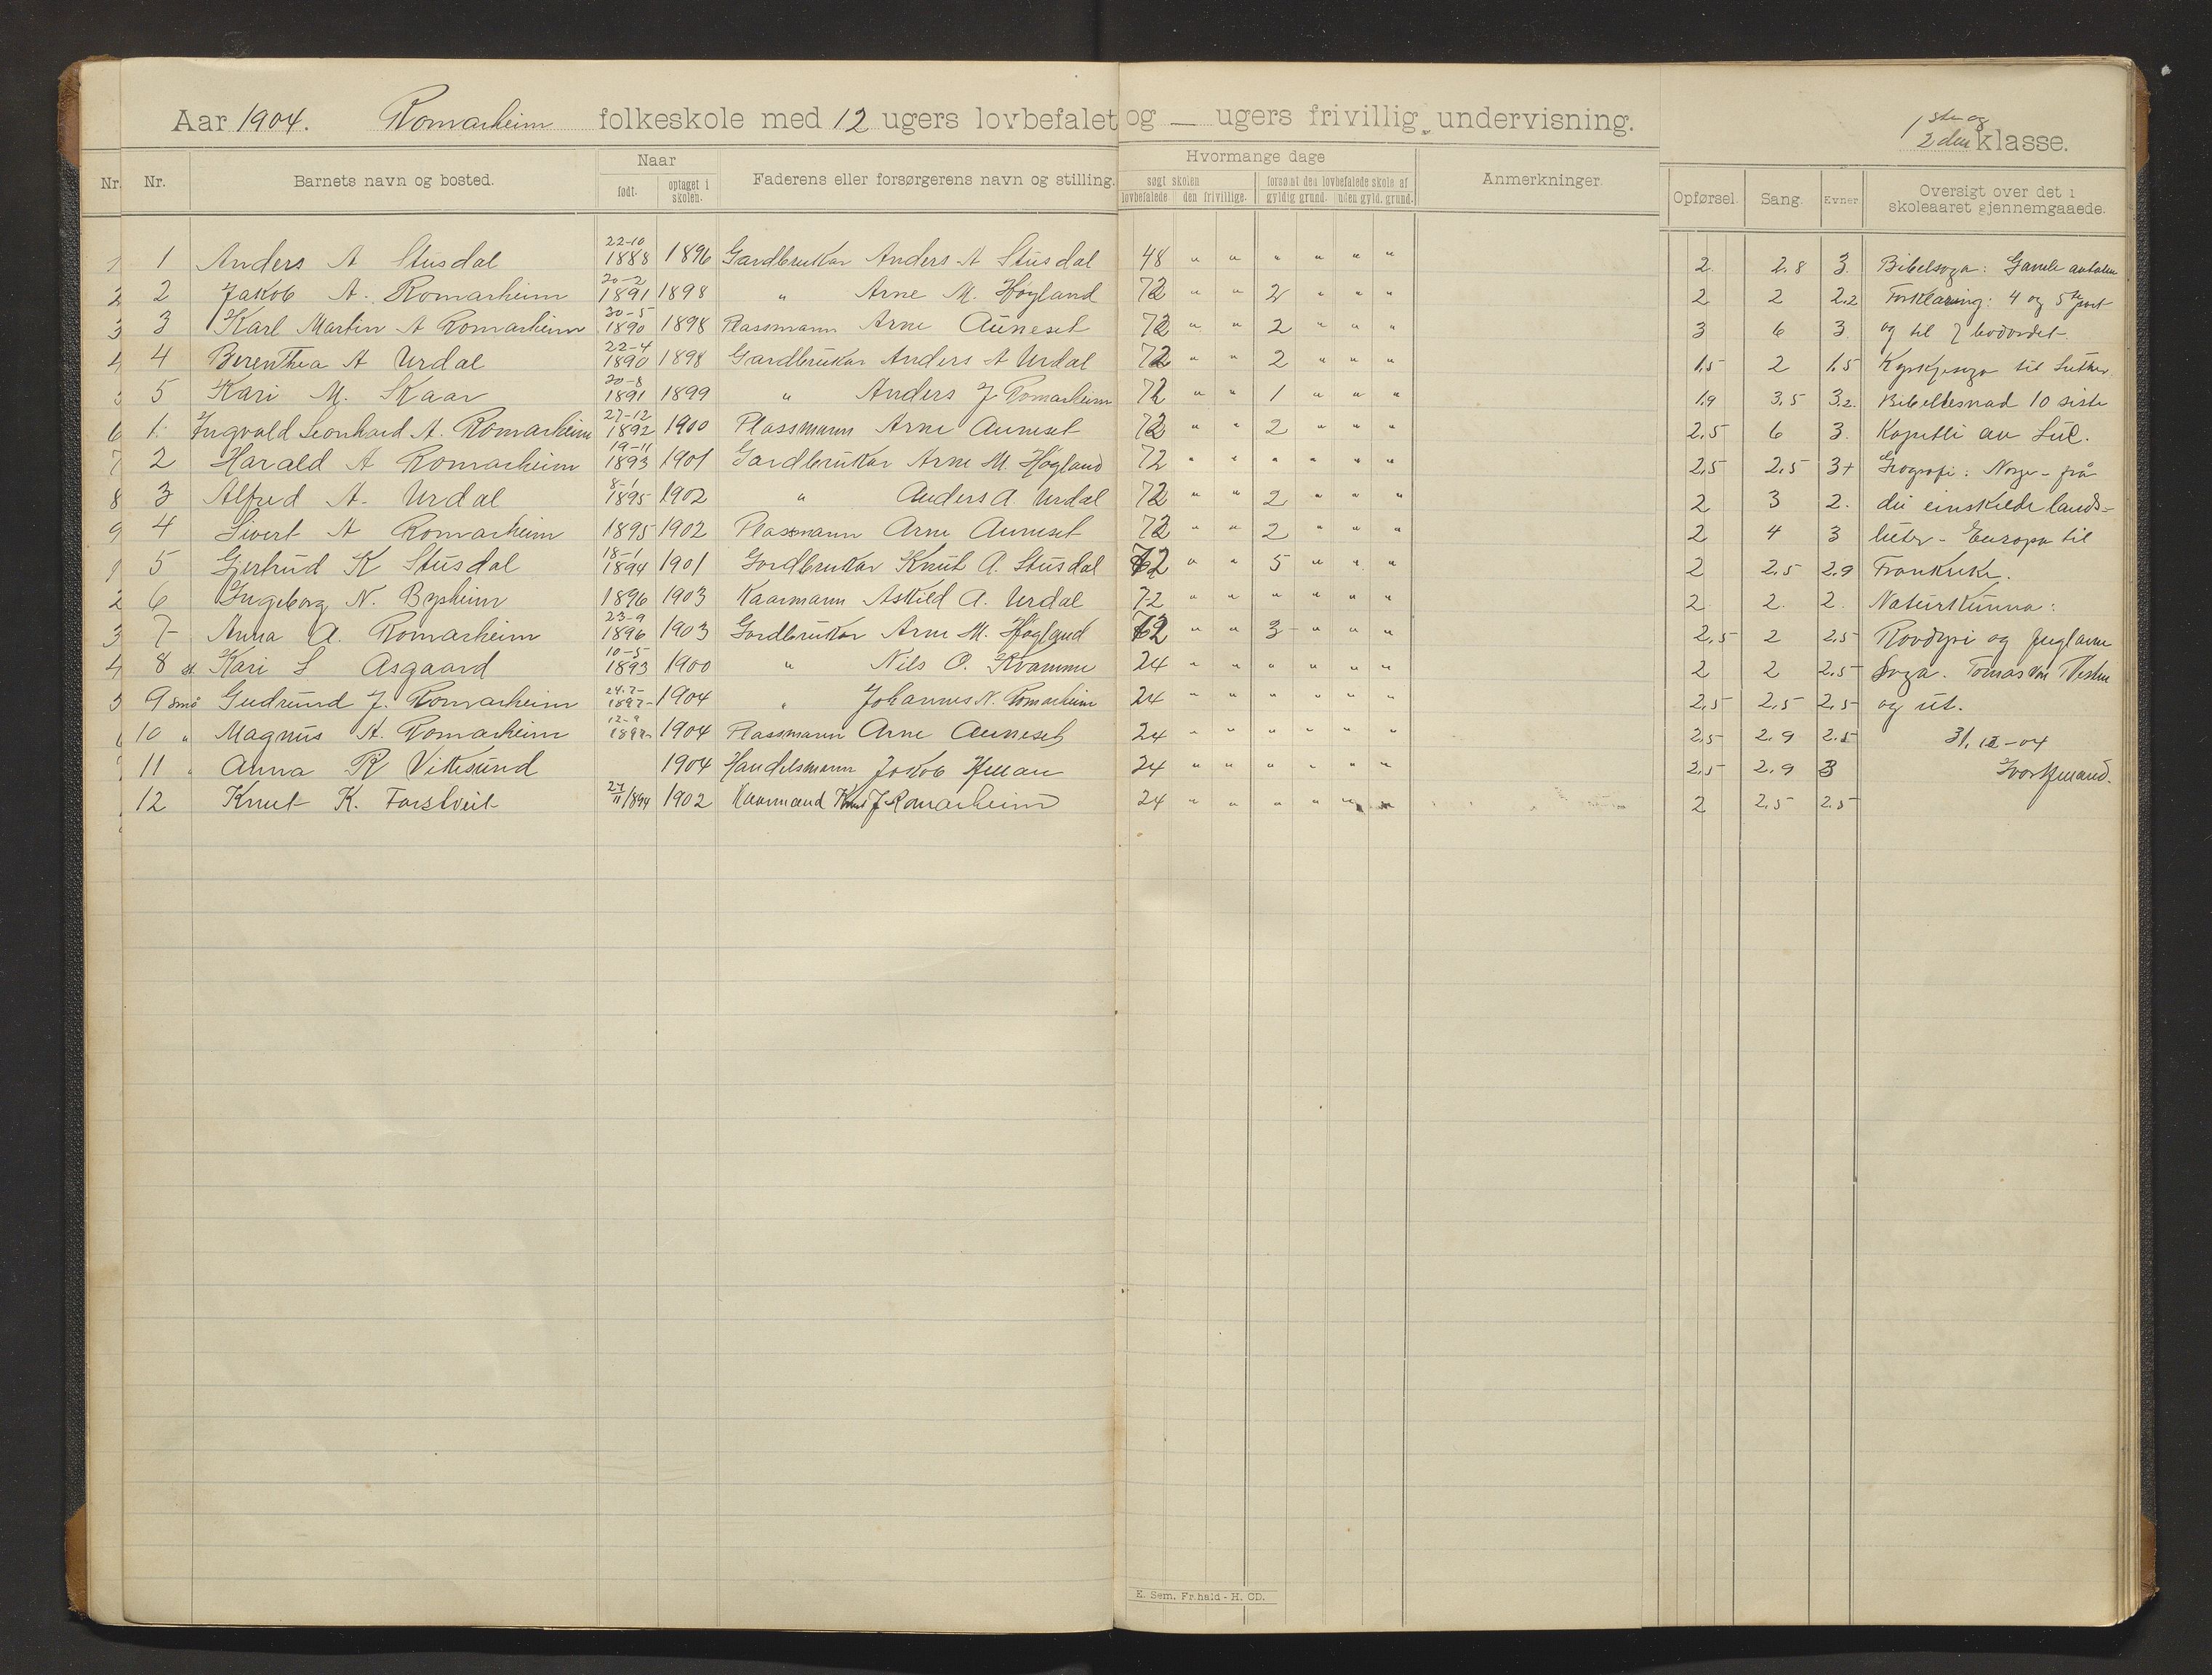 Aar 1904. Romarheim folkeskole med 12 ugers lovbefalet og — ugers frivillig undervisning. 1ste og 2den klasse.
Nr. Nr. Barnets navn og bosted. Naar født. optaget i skolen. Faderens eller forsørgerens navn og stilling. Hvormange dage søgt skolen lovbefalede den frivillige. forsømt den lovbefalede skole af gyldig grund. uden gyld. grund. Anmerkninger. Opførsel. Sang. Evner. Oversigt over det i skoleaaret gjennemgaaede.
1 1 Anders A Stusdal 22-10 1888 1896 Gardbrukar Anders A Stusdal 48 " " " " " " 2. 2.8 3. Bibelsoga: Gamle
2 2 Jakob A. Romarheim 20-2 1891 1898 " Arne M. Høgland 72 " " 2 " " " 2 2 2.2 Forklaring: 4 og 5te part
3 3 Karl Martin A Romarheim 30-5 1890 1898 Plassmann Arne Auneset 72 " " 2 " " " 3 6 3 og til 7 bodordet
4 4 Berenthea A Urdal 22-4 1890 1898 Gardbrukar Anders A Urdal 72 " " 2 " " " 1.5 2 1.5 Kyrkjesoga til Luther
5 Kari M. Skaar 20-8 1891 1899 " Anders J Romarheim 72 " " 1 " " " 1.9 3.5 3.2. 10 siste
6 1. Ingvald Leonhard A. Romarheim 27-12 1892 1900 Plassmann Arne Auneset 72 " " 2 " " " 2.5 6 3. Kapitli av Luc.
7 2 Harald A Romarheim 19-11 1893 1901 Gardbrukar Arne M. Høgland 72 " " " " " " 2.5 2.5 3+ Geografi: Norge - frå
8 3 Alfred A. Urdal 8-1 1895 1902 " Anders A. Urdal 72 " " 2 " " " 2 3 2. dei einskilde lands-
9 4 Sivert A Romarheim 1895 1902 Plassmann Arne Auneset 72 " " 2 " " " 2 4 3 luter - Europa til
1 5 Gjertrud K Stusdal 18-1 1894 1901 Gardbrukar Knut A. Stusdal 72 " " 5 " " " 2 2.5 2.9 Frankrike.
2 6 Ingeborg N. Bysheim 1896 1903 Kaarmann Askild A. Urdal 72 " " " " " " 2 2. 2. Naturkunna:
3 7 Anna A. Romarheim 23-9 1896 1903 Gardbrukar Arne M. Høgland 72 " " 3 " " " 2,5 2 2.5 Rovdyri og fuglarne
4 8 st. Kari S Asgaard 10-5 1893 1900 " Nils O. Kvamme 24 " " " " " " 2 2 2.5 Soga. Tomas von Westen
5 9 små Gudrund J. Romarheim 24.7- 1897- 1904 " Johannes N. Romarheim 24 " " " " " " 2.5 2.5 2.5 og ut.
10 " Magnus A. Romarheim 12-9 1897 1904 Plassmann Arne Auneset 24 " " " " " " 2.5 2.9 2.5 31. -04
11 " Anna R Vikesund 1904 Handelsmann Jakob 24 " " " " " " 2.5 2.9 3
12 Knut K. Farstveit 27/11 1894 1902 Kaarmand Knut J Romarheim 24 " " " " " " 2 2.5 2.5
E. Sem, Fr.hald - H. CD.